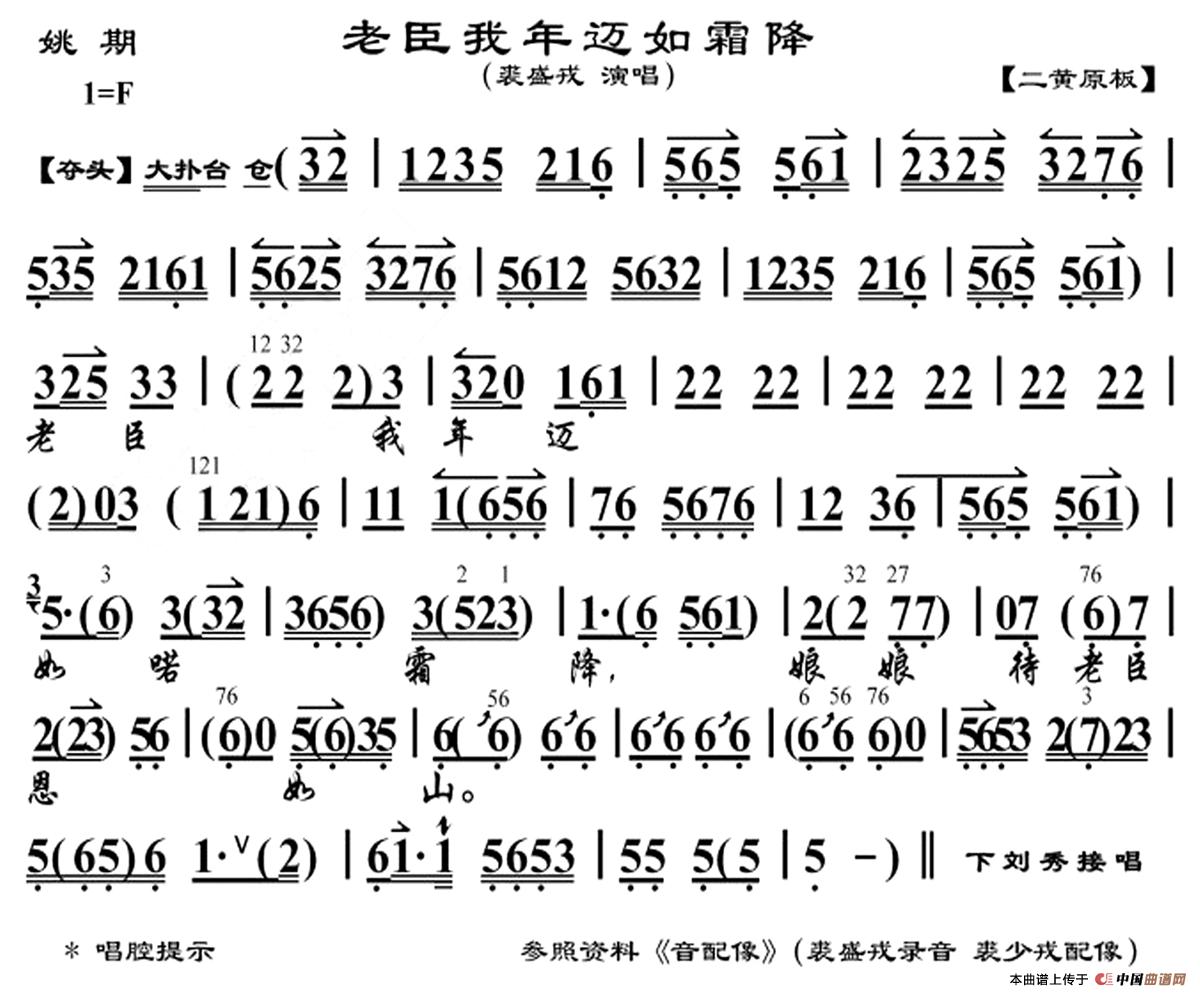 姚 期
老臣我年迈如霜降
(裘盛戎 演唱)
1=F
【二黄原板】
【夺头】大扑台 仓(32 | 1235 216 | 565 561 | 2325 3276 |
535 2161 | 5625 3276 | 5612 5632 | 1235 216 | 565 561) |
12 32
325 33 | (22 2)3 | 320 161 | 22 22 | 22 22 | 22 22 |
老 臣 我 年 迈
121
(2)03 (121)6 | 11 1(656 | 76 5676 | 12 36 | 565 561) |
3 3 2 1 32 27 76
5·(6) 3(32 | 3656) 3(523) | 1·(6 561) | 2(2 77) | 07 (6)7 |
如 喏 霜 降, 娘 娘 待 老 臣
76 56 6 56 76 3
2(23) 56 | (6)0 5(6)35 | 6(6) 66 | 66 66 | (66 6)0 | 5653 2(7)23 |
恩 如 山。
5(65)6 1·∨(2) | 61·1 5653 | 55 5(5 | 5 －) ‖ 下刘秀接唱
* 唱腔提示
参照资料《音配像》(裘盛戎录音 裘少戎配像)
本曲谱上传于 中国曲谱网